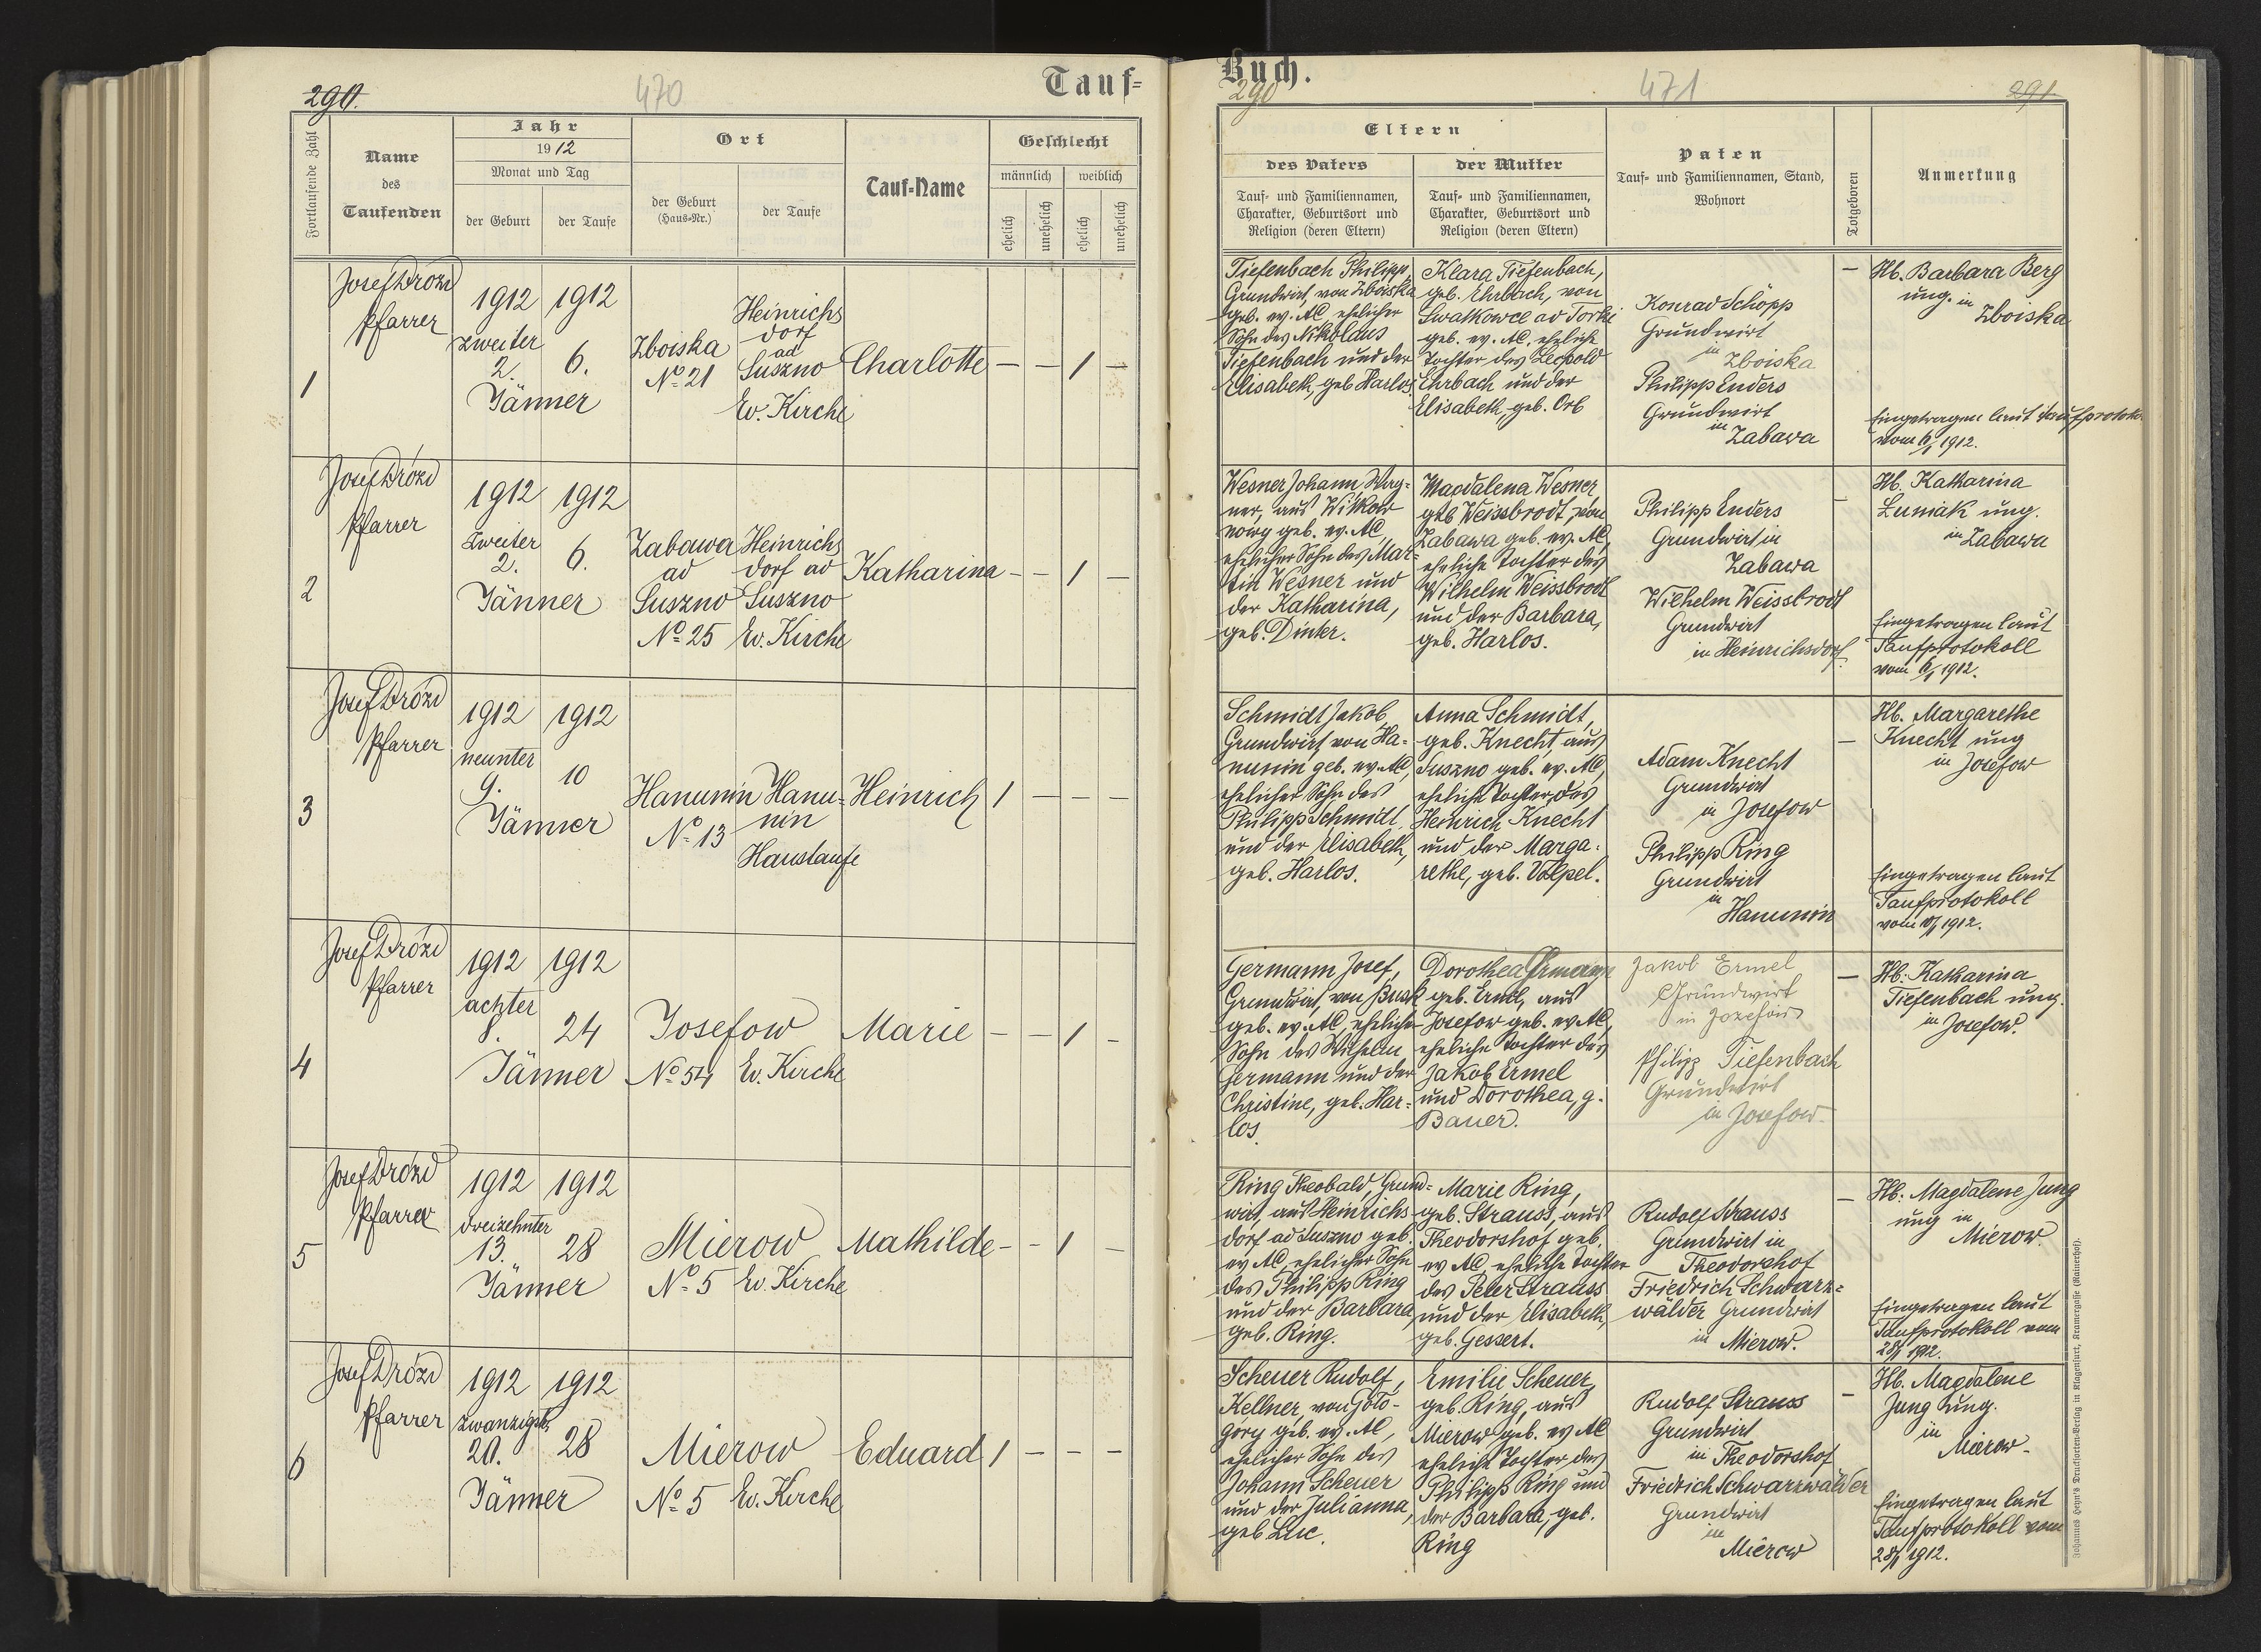 290.
470
Tauf=
Fortlaufende Zahl
Name
des
Taufenden
Jahr
1912
Monat und Tag
der Geburt
der Taufe
Ort
der Geburt
(Haus=Nr.)
der Taufe
Tauf=Name
Geschlecht
männlich
weiblich
ehelich
unehelich
ehelich
unehelich
1
Josef Drozd
Pfarrer
1912
zweiter
2.
Jänner
1912
6.
Zboiska
No 21
Heinrichs
dorf
ad
Suszno
Ev. Kirche
Charlotte
— — 1 —
2
Josef Drózd
Pfarrer
1912
zweiter
2.
Jänner
1912
6.
Zabawa
ad
Suszno
No 25
Heinrichs
dorf ad
Suszno
Ev. Kirche
Katharina
— — 1 —
3
Josef Drózd
Pfarrer
1912
neunter
9.
Jänner
1912
10
Hanunin
No 13
Hanu-
nin
Haustaufe
Heinrich
1 — — —
4
Josef Drózd
Pfarrer
1912
achter
8.
Jänner
1912
24
Josefow
No 54
Ev. Kirche
Marie
— — 1 —
5
Josef Drózd
Pfarrer
1912
dreizehnter
13.
Jänner
1912
28
Mierow
No 5
Ev. Kirche
Mathilde
— — 1 —
6
Josef Drózd
Pfarrer
1912
zwanzigst.
20.
Jänner
1912
28
Mierow
No 5
Ev. Kirche
Eduard
1 — — —
Buch.
290
471
291.
Eltern
des Vaters
Tauf= und Familiennamen,
Charakter, Geburtsort und
Religion (deren Eltern)
der Mutter
Tauf= und Familiennamen,
Charakter, Geburtsort und
Religion (deren Eltern)
Paten
Tauf= und Familiennamen, Stand,
Wohnort
Totgeboren
Anmerkung
Tiefenbach Philipp,
Grundwirt, von Zboiska
geb. ev. AC, ehelicher
Sohn des Nikolaus
Tiefenbach und der
Elisabeth, geb Harlos.
Klara Tiefenbach,
geb. Ehrbach, von
Swatkowce ad Torki
geb. ev. AC. eheliche
Tochter des Leopold
Ehrbach und der
Elisabeth, geb. Orb
Konrad Schöpp
Grundwirt
in
Zboiska
Philipp Enders
Grundwirt
in
Zabawa
—
Hb. Barbara Berg
ung. in
Zboiska
Eingetragen laut Taufprotok.
vom 6/1 1912.
Wesner Johann Wag-
ner, aus Witkow
nowy geb. ev. AC,
ehelicher Sohn des Mar-
tin Wesner und
der Katharina,
geb. Dinter.
Magdalena Wesner
geb Weissbrodt, von
Zabawa geb. ev. AC,
eheliche Tochter des
Wilhelm Weissbrodt
und der Barbara,
geb. Harlos.
Philipp Enders
Grundwirt in
Zabawa
Wilhelm Weissbrodt
Grundwirt
in Heinrichsdorf.
—
Hb. Katharina
Luniak ung.
in Zabawa
Eingetragen laut
Taufprotokoll
vom 6/1 1912.
Schmidt Jakob,
Grundwirt von Ha-
nunin geb. ev. AC,
ehelicher Sohn des
Philipp Schmidt
und der Elisabeth,
geb. Harlos.
Anna Schmidt,
geb. Knecht, aus
Suszno geb. ev. AC,
eheliche Tochter des
Heinrich Knecht
und der Marga-
rethe, geb. Völpel.
Adam Knecht
Grundwirt
in Josefow
Philipp Ring
Grundwirt
in
Hanunin
—
Hb. Margarethe
Knecht ung
in Josefow
Eingetragen laut
Taufprotokoll
vom 10/1 1912.
Germann Josef,
Grundwirt, von Busk
geb. ev. AC, ehelicher
Sohn des Wilhelm
Germann und der
Christine, geb. Har-
los.
Dorothea Germann
geb. Ermel, aus
Josefow geb. ev. AC,
eheliche Tochter des
Jakob Ermel
und Dorothea, g.
Bauer.
Jakob Ermel
Grundwirt
in Jozefów
Philipp Tiefenbach
Grundwirt
in Josefow.
—
Hb. Katharina
Tiefenbach ung.
in Josefow.
Ring Theobald, Grund-
wirt, aus Heinrichs-
dorf ad Suszno geb.
ev AC, ehelicher Sohn
des Philipp Ring
und der Barbara,
geb. Ring.
Marie Ring,
geb. Strauss, aus
Theodorshof geb.
ev AC, eheliche Tochter
des Peter Strauss
und der Elisabeth,
geb. Gessert.
Rudolf Strauss
Grundwirt in
Theodorshof
Friedrich Schwarz-
wälder Grundwirt
in Mierow.
—
Hb. Magdalene Jung
ung in
Mierow.
Eingetragen laut
Taufprotokoll vom
28/1 1912.
Scheuer Rudolf,
Kellner, von Goło-
gory geb. ev. AC,
ehelicher Sohn des
Johann Scheuer
und der Julianna,
geb Luc.
Emilie Scheuer,
geb. Ring, aus
Mierow geb. ev AC
eheliche Tochter des
Philipp Ring und
der Barbara, geb.
Ring
Rudolf Strauss
Grundwirt
in Theodorshof
Friedrich Schwarzwälder
Grundwirt
in
Mierow
—
Hb. Magdalene
Jung ung.
in
Mierow.
Eingetragen laut
Taufprotokoll vom
28/1 1912.
Johannes Heyn's Drucksorten=Verlag in Klagenfurt, Kramergasse (Rainerhof).